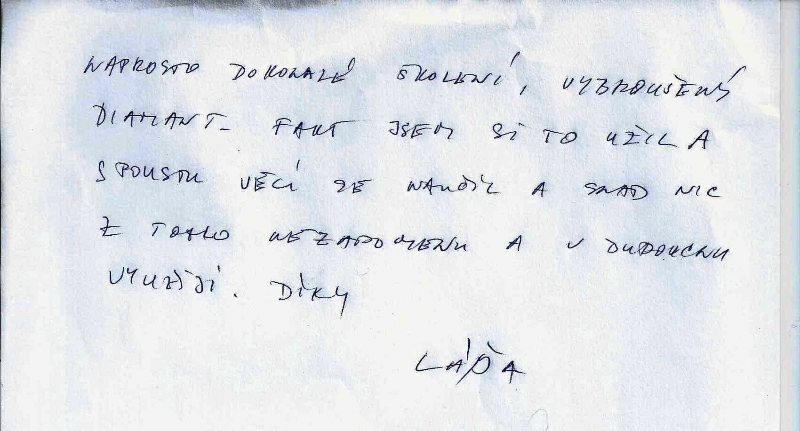 NAPROSTO DOKONALÉ ŠKOLENÍ, VYBROUŠENÝ
DIAMANT. FAKT JSEM SI TO UŽIL A
SPOUSTU VĚCÍ SE NAUČIL A SNAD NIC
Z TOHO NEZAPOMENU A V BUDOUCNU
VYUŽIJI. DÍKY
LÁĎA